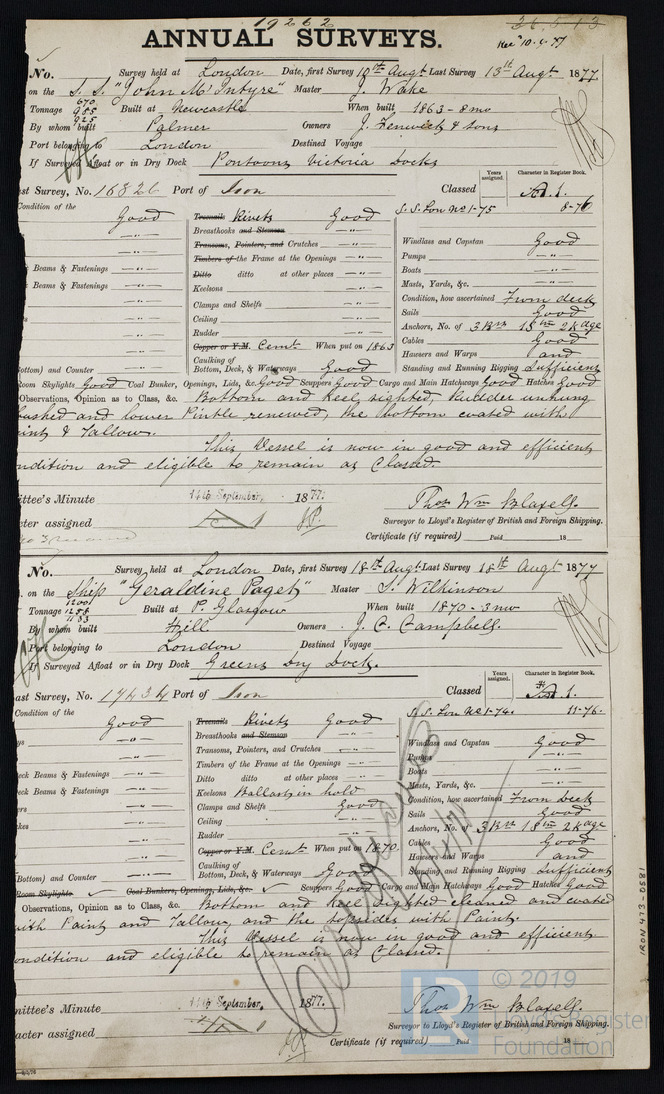 19262
36,513
Rec 10.9.77
ANNUAL SURVEYS.
No. Survey held at London Date, first Survey 10th Augt Last Survey 13th Augt 1877
on the S.S. "John McIntyre" Master J. Wake
Tonnage 670 985 925 Built at Newcastle When built 1863 - 8mo
By whom built Palmer Owners J. Fenwick & Sons
Port belonging to London Destined Voyage
If Surveyed Afloat or in Dry Dock Pontoons Victoria Docks
ast Survey, No. 16826 Port of Iron Classed Years assigned. Character in Register Book. A.1.
S.S. Lon No 1-75 8-76
Condition of the Good
Treenails Rivets Good
Breasthooks and Stemson -"-
Transoms, Pointers, and Crutches -"-
Timbers of the Frame at the Openings -"-
Beams & Fastenings -"-
Ditto ditto at other places -"-
Beams & Fastenings -"-
Keelsons -"-
Clamps and Shelfs -"-
Ceiling -"-
Rudder -"-
Copper or Y.M. Cemt When put on 1863
Bottom) and Counter -"-
Caulking of Bottom, Deck, & Waterways Good
Windlass and Capstan Good
Pumps -"-
Boats -"-
Masts, Yards, &c. -"-
Condition, how ascertained From deck
Sails Good
Anchors, No. of 3 Brs 1 Sm 2 Kdge
Cables Good
Hawsers and Warps and
Standing and Running Rigging Sufficient
Room Skylights Good Coal Bunker, Openings, Lids, &c. Good Scuppers Good Cargo and Main Hatchways Good Hatches Good
Observations, Opinion as to Class, &c. Bottom and Keel sighted, Rudder unhung
bushed and lower Pintle renewed, the bottom coated with
aint & Tallow.
This Vessel is now in good and efficient
ndition and eligible to remain as Classed.
ittee's Minute 14th September, 1877.
cter assigned A 1
Thos Wm Blaxell.
Surveyor to Lloyd's Register of British and Foreign Shipping.
Certificate (if required) Paid 18
No. Survey held at London Date, first Survey 18th Augt Last Survey 18th Augt 1877
on the Ship "Geraldine Paget" Master S. Wilkinson
Tonnage 1200 1258 1183 Built at P. Glasgow When built 1870 - 3mo
By whom built Hill Owners J. C. Campbell.
Port belonging to London Destined Voyage
If Surveyed Afloat or in Dry Dock Greens Dry Dock.
ast Survey, No. 17434 Port of Iron Classed Years assigned. Character in Register Book. A.1.
S.S. Lon No 1-74. 11-76.
Condition of the Good
Treenails Rivets Good
Breasthooks and Stemson -"-
Transoms, Pointers, and Crutches -"-
Timbers of the Frame at the Openings -"-
eck Beams & Fastenings -"-
Ditto ditto at other places -"-
eck Beams & Fastenings -"-
Keelsons Ballast in hold
Clamps and Shelfs Good
Ceiling -"-
Rudder -"-
Copper or Y.M. Cemt When put on 1870
Bottom) and Counter -"-
Caulking of Bottom, Deck, & Waterways Good
Windlass and Capstan Good
Pumps -"-
Boats -"-
Masts, Yards, &c. -"-
Condition, how ascertained From Deck
Sails Good
Anchors, No. of 3 Brs 1 Sm 2 Kdge
Cables Good
Hawsers and Warps and
Standing and Running Rigging Sufficient
Room Skylights Coal Bunkers, Openings, Lids, &c. Scuppers Good Cargo and Main Hatchways Good Hatches Good
Observations, Opinion as to Class, &c. Bottom and Keel sighted cleaned and coated
with Paint and Tallow, and the topsides with Paint.
This Vessel is now in good and efficient
ondition and eligible to remain as Classed.
mittee's Minute 14th September, 1877.
acter assigned A 1
Thos Wm Blaxell
Surveyor to Lloyd's Register of British and Foreign Shipping.
Certificate (if required) Paid 18
IRON 473-0581
LR © 2019
Lloyd's Register
Foundation